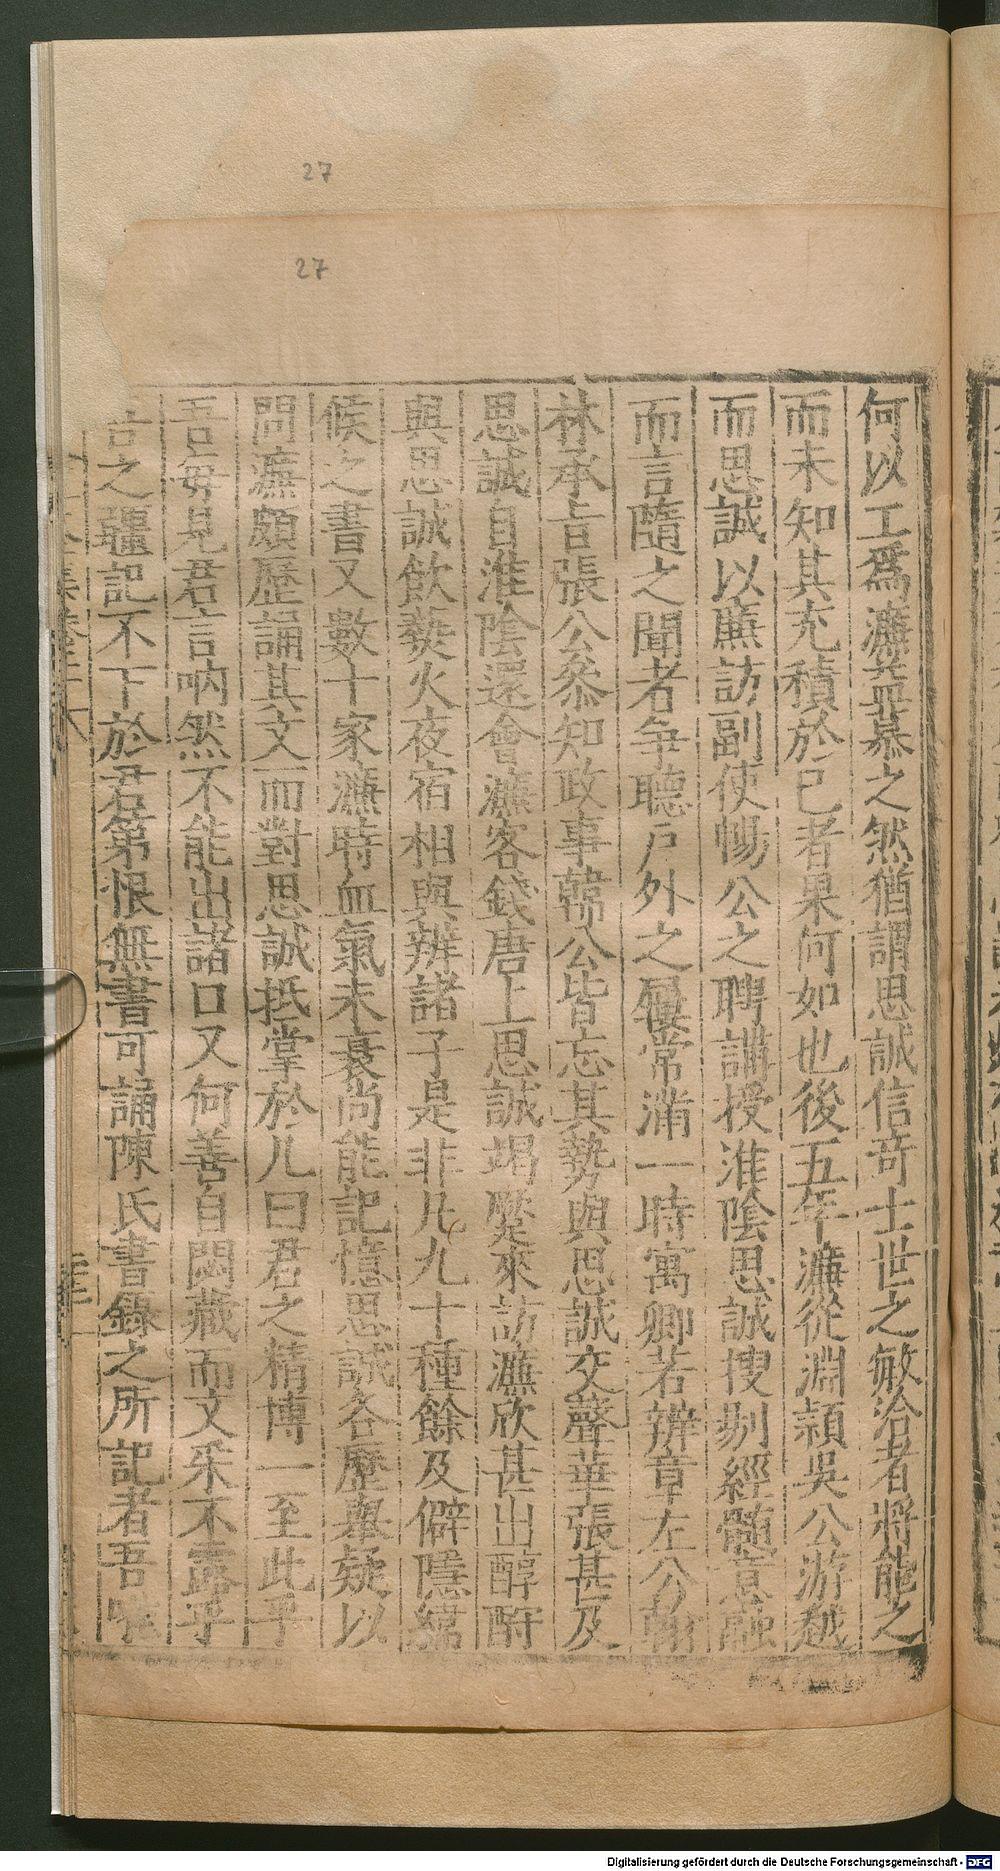 27
27
何以工爲濂益慕之然猶謂思誠信奇士世之敏洽者將能之
而未知其充積於已者果何如也後五年濂從淵穎吳公游越
而思誠以廉訪副使暢公之聘講授淮陰思誠搜剔經髓意融
而言隨之聞者争聽戸外之屨常滿一時寓卿若辨章左公翰
林承旨張公叅知政事韓公皆忘其勢與思誠交聲華張甚及
思誠自淮陰還會濂客錢唐上思誠竭蹷來訪濂欣甚出醇酎
與思誠飲爇火夜宿相與辨諸子是非凡九十種餘及僻隱緯
候之書又數十家濂時血氣未衰尚能記憶思誠各歷舉疑以
問濂頗歷誦其文而對思誠抵掌於几曰君之精博一至此乎
吾毎見君言吶然不能出諸口又何善自閟藏而文采不露乎
言之疆記不下於君第恨無書可誦陳氏書錄之所記者吾
Digitalisierung gefördert durch die Deutsche Forschungsgemeinschaft - DFG